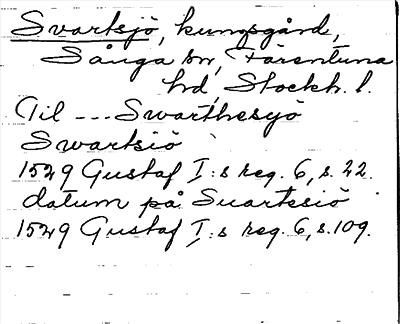 Svartsjö, kungsgård,
Sånga sn, Färentuna
hd, Stockh. l.
Til --- Swarthesyö
Swartsiö
1529 Gustaf I:s reg. 6, s. 22.
datum på Suartssiö
1529 Gustaf I:s reg. 6, s. 109.